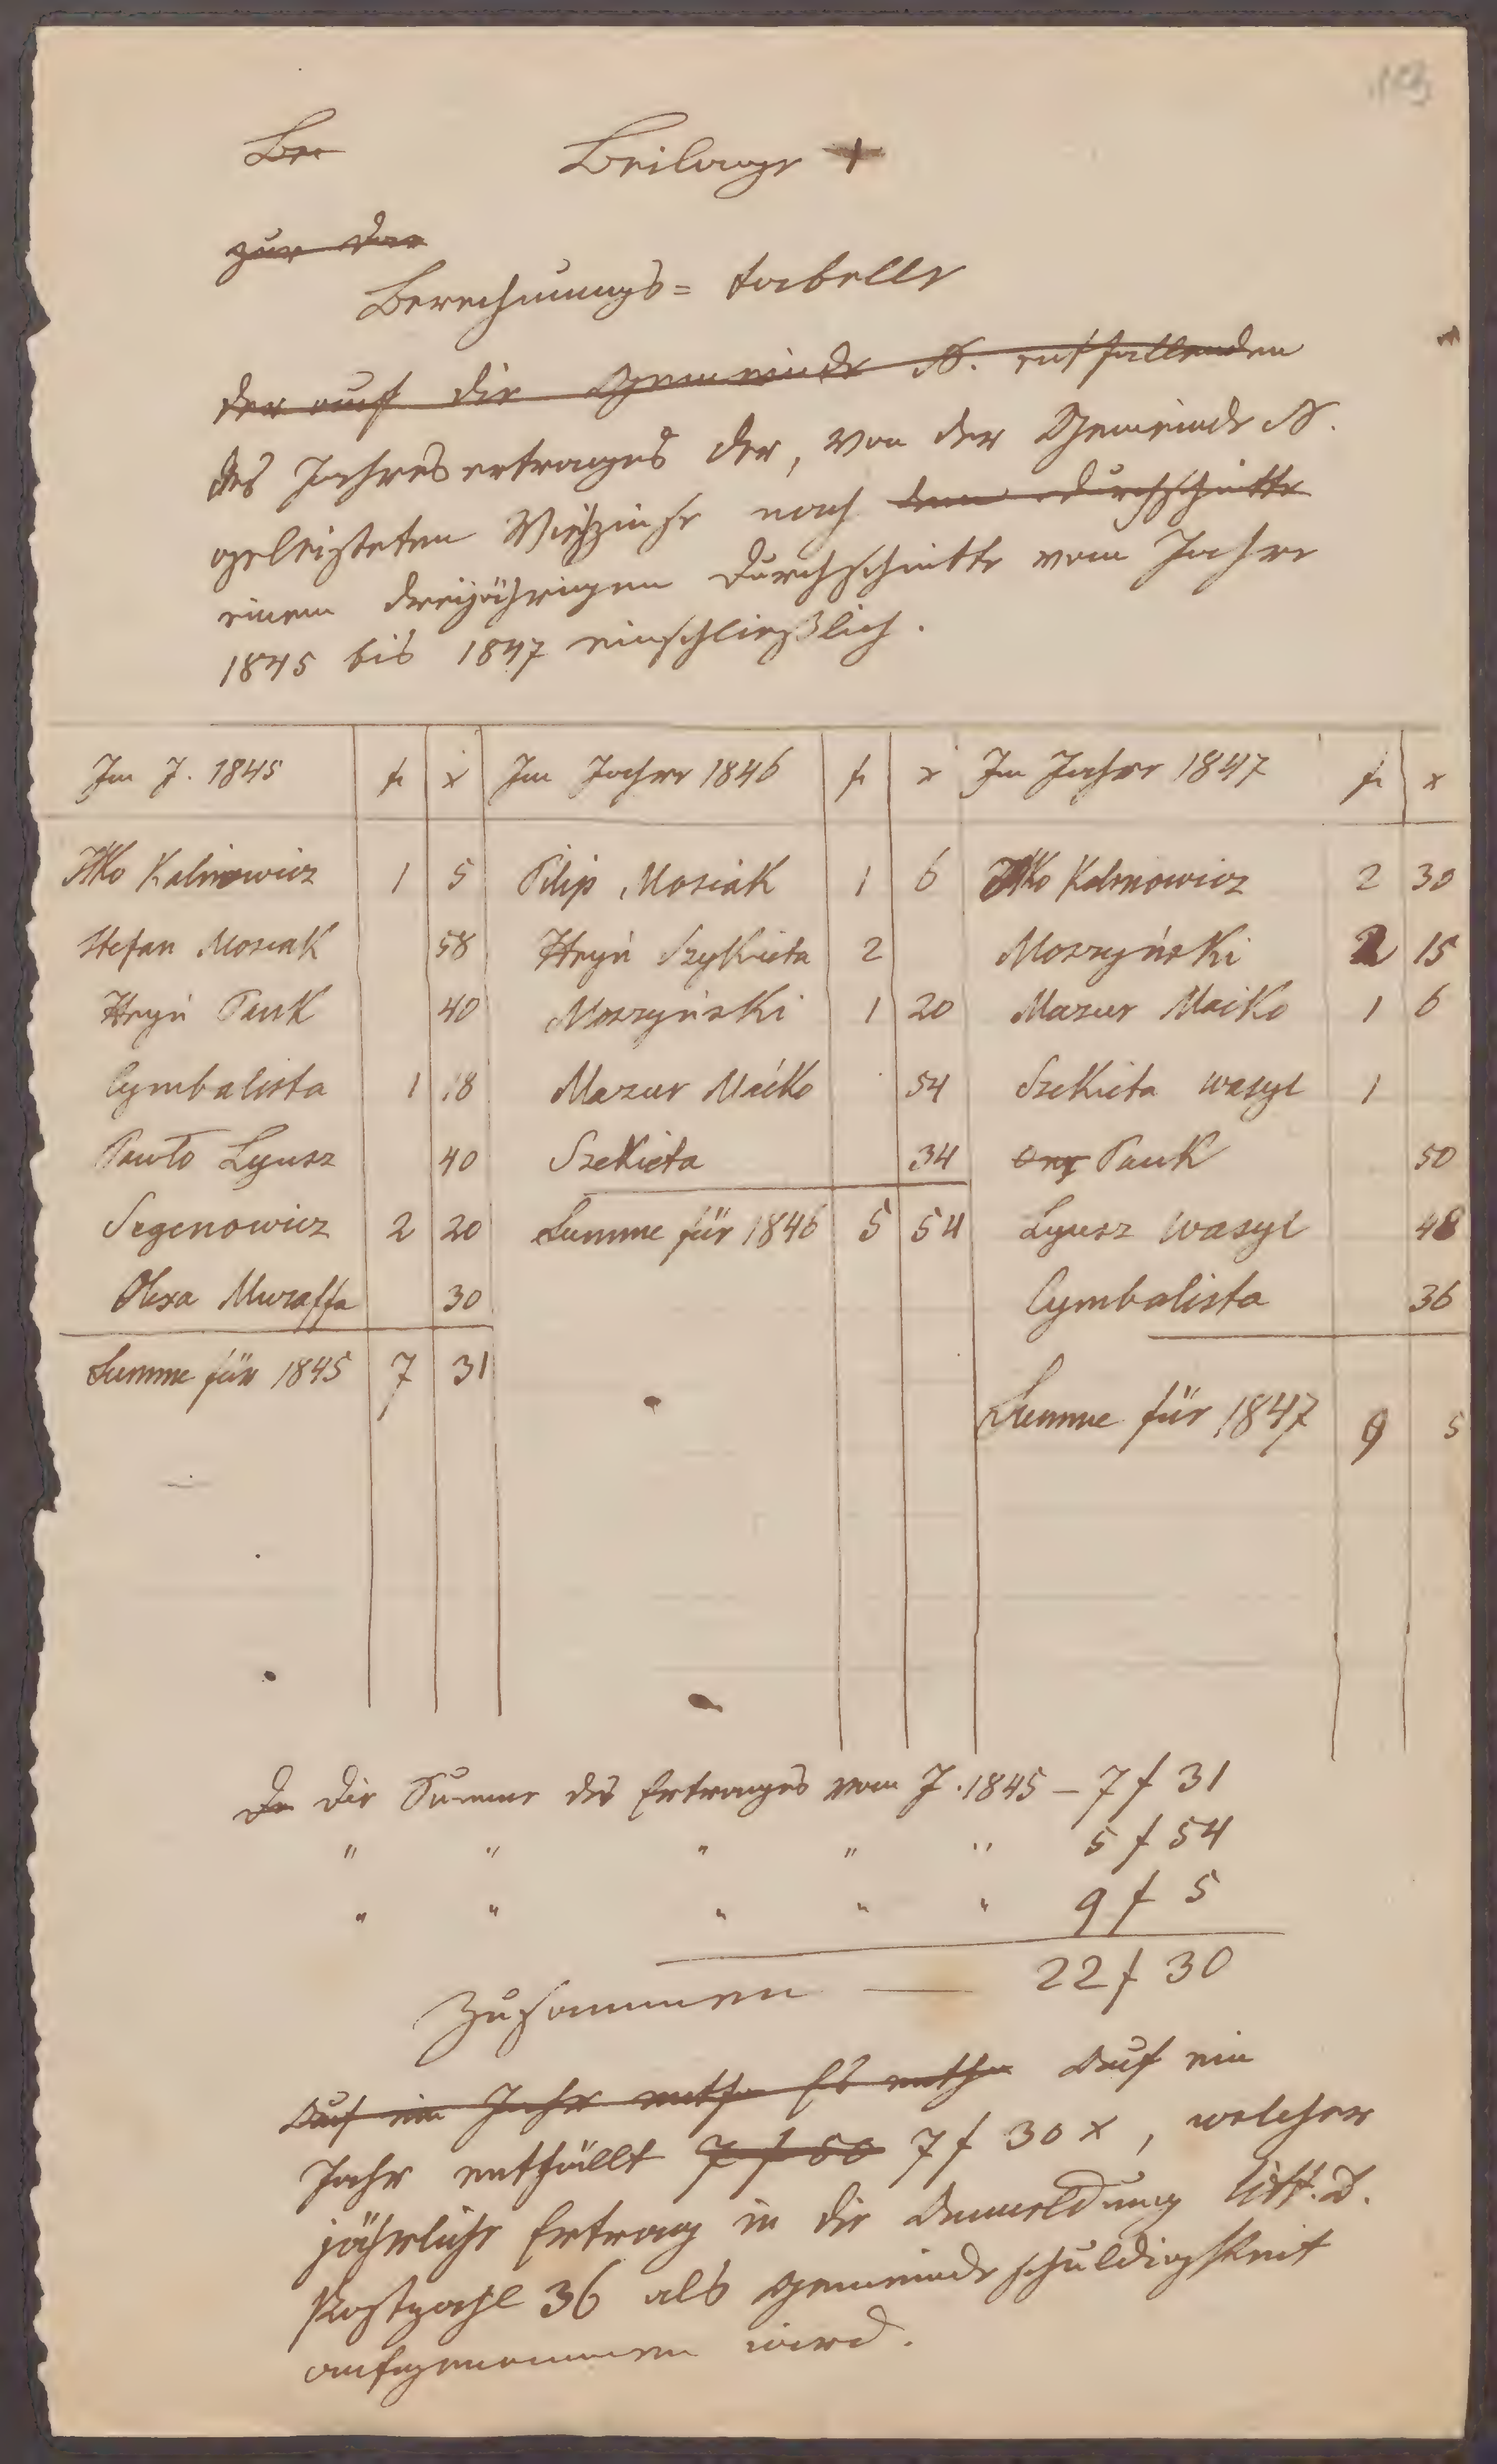 113
Ber Beilage +
zur der
Berechnungs= tabelle
der auf die Gemeinde N. entfallenden
des Jahresertrages der, von der Gemeinde N.
geleisteten Viehzinse nach dem durchschnitte
einem dreijährigen Durchschnitte vom Jahre
1845 bis 1847 einschließlich.
Im J. 1845 f x Im Jahre 1846 f x Im Jahre 1847 f x
Ilko Kalinowicz 1 5 Filip Mosiak 1 6 Ilko Kalinowicz 2 30
Stefan Mosiak 58 Hryń Szykieta 2 Moszyński 2 15
Hryń Pauk 40 Moszyński 1 20 Mazur Maćko 1 6
Cymbalista 1 18 Mazur Maćko 54 Szekieta Wasyl 1
Pawło Lyusz 40 Szekieta 34 Pauk 50
Segenowicz 2 20 Summe für 1846 5 54 Lyusz Wasyl 48
Olexa Muraffa 30 Cymbalista 36
Summe für 1845 7 31
Summe für 1847 9 5
Da Die Summe des Ertrages vom J. 1845 – 7 f 31
" " " " " 5 f 54
" " " " " 9 f 5
Zusammen — 22 f 30
Auf ein Jahr entfa Es entfa Auf ein
Jahr entfällt 7 f 50 7 f 30 x, welcher
jährliche Ertrag in die Anmeldung litt. D.
Postzahl 36 als Gemeindeschuldigkeit
aufgenommen wird.